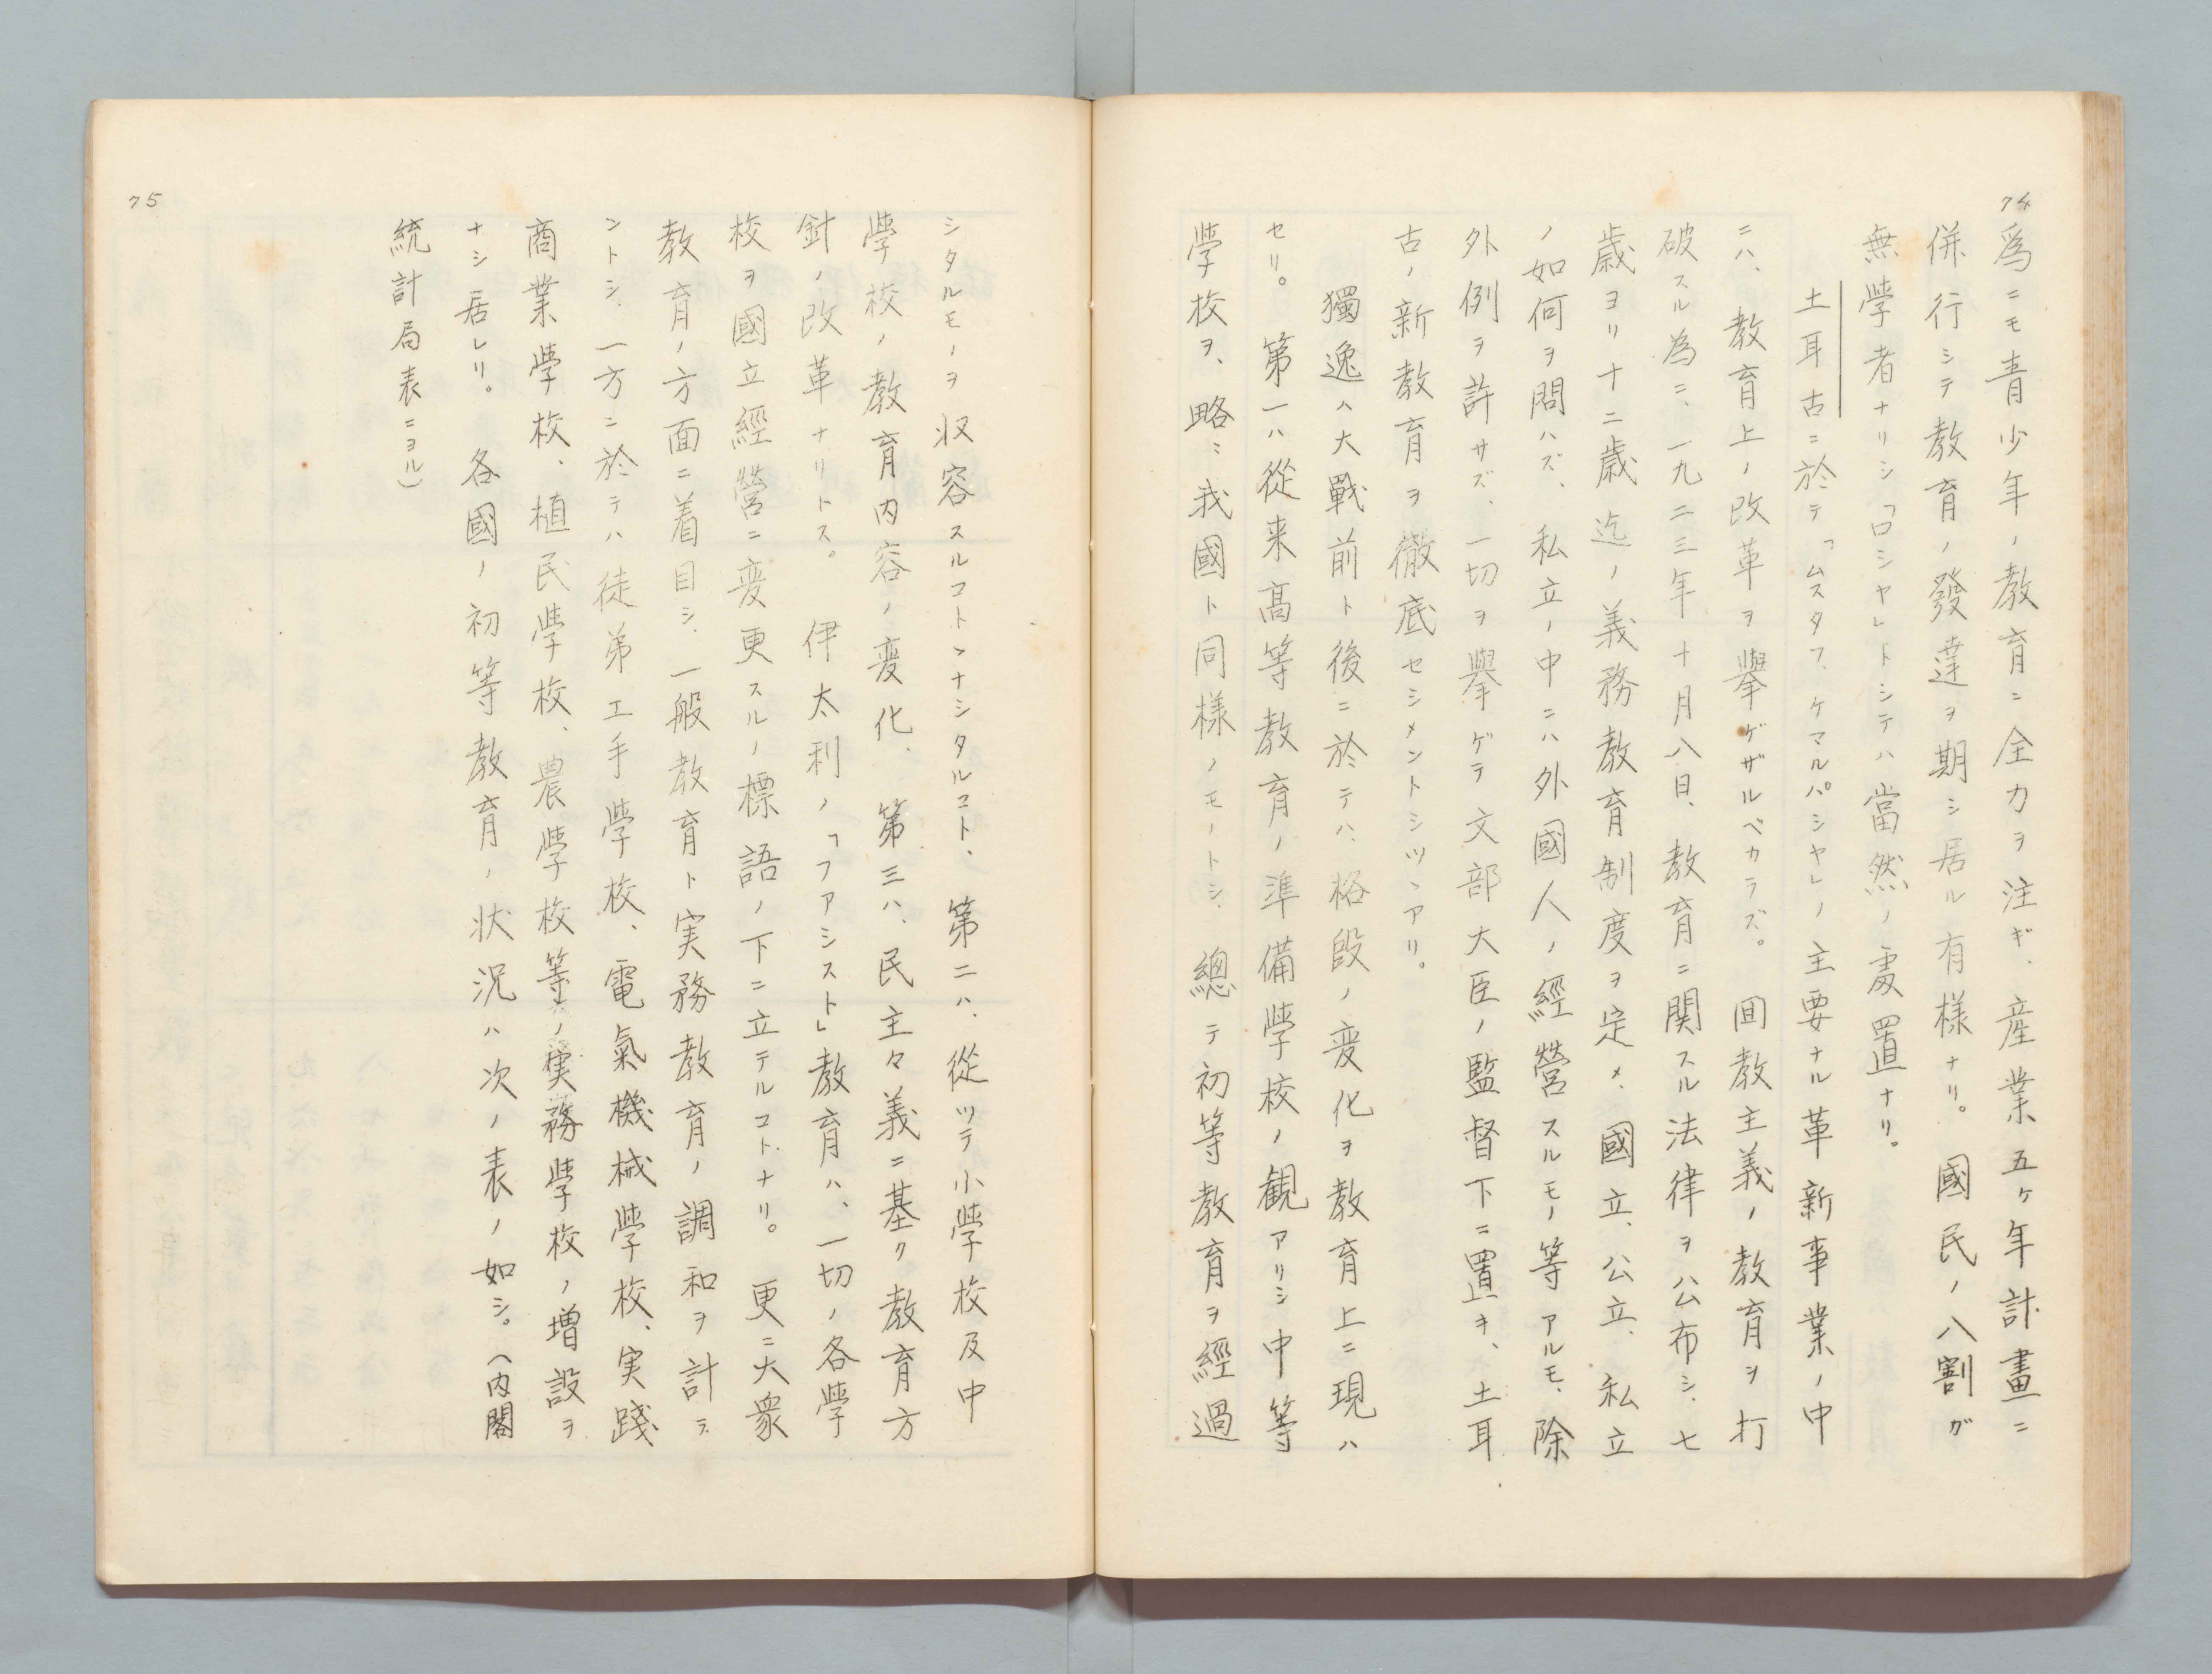 74
爲ニモ青少年ノ教育ニ全力ヲ注ギ、産業五ヶ年計畫ニ
併行シテ教育ノ發達ヲ期シ居ル有様ナリ。國民ノ八割ガ
無學者ナリシ「ロシヤ」トシテハ當然ノ處置ナリ。
土耳古ニ於テ「ムスタフ、ケマルパシヤ」ノ主要ナル革新事業ノ中
ニハ、教育上ノ改革ヲ擧ゲザルベカラズ。回教主義ノ教育ヲ打
破スル為ニ、一九二三年十月八日、教育ニ関スル法律ヲ公布シ、七
歳ヨリ十二歳迄ノ義務教育制度ヲ定メ、國立、公立、私立
ノ如何ヲ問ハズ、私立ノ中ニハ外國人ノ經營スルモノ等アルモ、除
外例ヲ許サズ、一切ヲ擧ゲテ文部大臣ノ監督下ニ置キ、土耳
古ノ新教育ヲ徹底セシメントシツヽアリ。
獨逸ハ大戰前ト後ニ於テハ、格段ノ変化ヲ教育上ニ現ハ
セリ。第一ハ從来高等教育ノ準備學校ノ観アリシ中等
學校ヲ、略ミ我國ト同様ノモノトシ、總テ初等教育ヲ經過
75
シタルモノヲ収容スルコトヽナシタルコト、第二ハ、從ツテ小學校及中
學校ノ教育内容ノ変化、第三ハ、民主々義ニ基ク教育方
針ノ改革ナリトス。伊太利ノ「フアシスト」教育ハ、一切ノ各學
校ヲ國立經營ニ変更スルノ標語ノ下ニ立テルコトナリ。更ニ大衆
教育ノ方面ニ着目シ、一般教育ト実務教育ノ調和ヲ計ラ
ントシ、一方ニ於テハ徒弟工手學校、電氣機械學校、実踐
商業學校、植民學校、農學校等ノ実務學校ノ増設ヲ
ナシ居レリ。各國ノ初等教育ノ状況ハ次ノ表ノ如シ。(内閣
統計局表ニヨル)